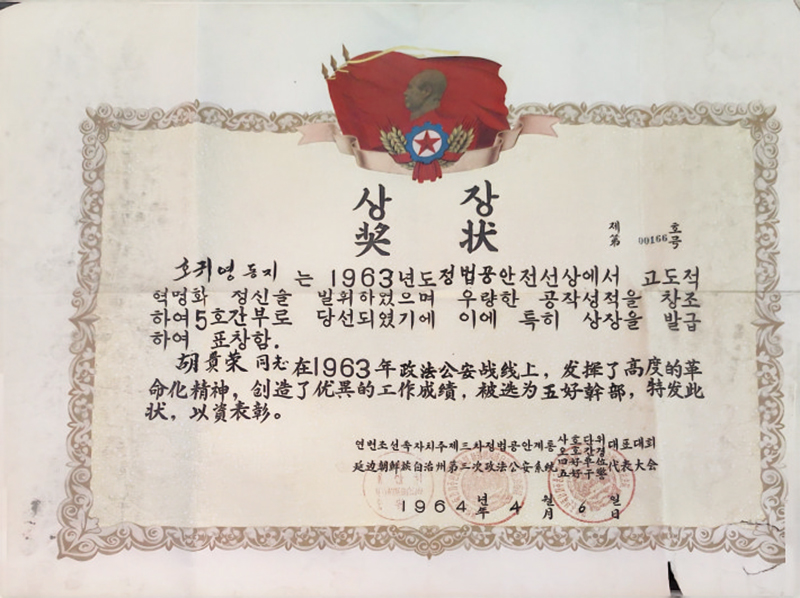 상 장
奖 状
제 호
第 00166 号
호귀영 동지 는 1963년도정법공안전선상에서 고도적
혁명화 정신을 발위하였으며 우량한 공작성적을 창조
하여5호간부로 당선되였기에 이에 특히 상장을 발급
하여 표창함.
胡贵荣 同志在1963年政法公安战线上，发揮了高度的革
命化精神，创造了优異的工作成績，被选为五好幹部，特发此
状，以資表彰。
연변조선족자치주제三차정법공안계통 사호단위 오호간경 대표대회
延边朝鮮族自治州第三次政法公安系統 四好单位 五好干警 代表大会
년 월 일
1964 年 4 月 6 日